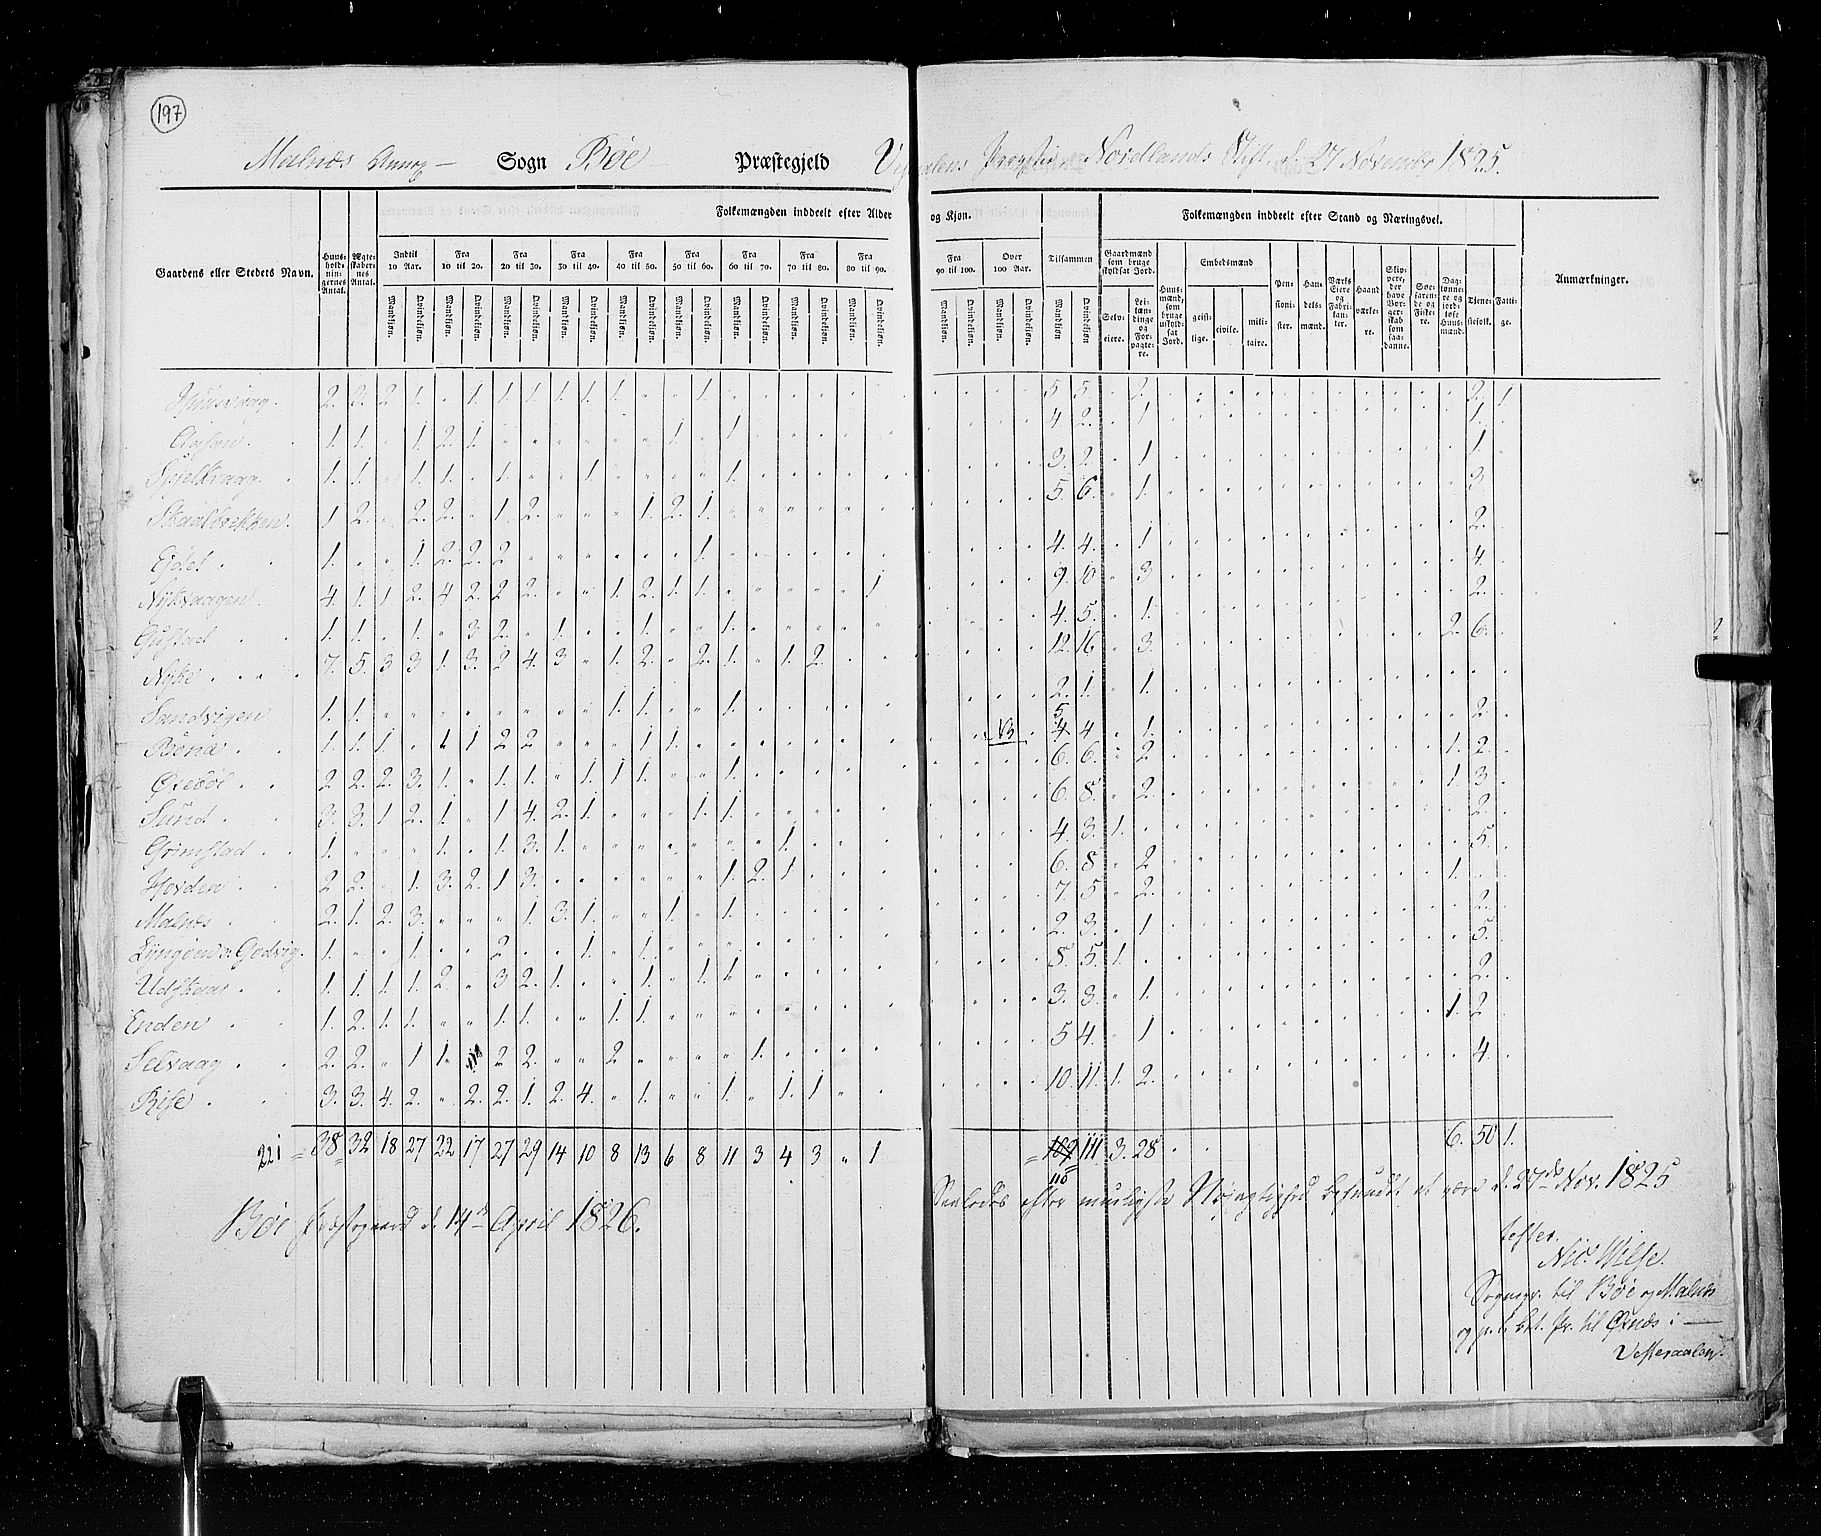 197
Malnæs Annex — Sogn Bøe — Præstegjeld Vesteraalens Provstie Nordlands Stift d. 27 November 1825.
Folkemængden inddeelt efter Alder og Kjøn. Folkemængden inddeelt efter Stand og Næringsvei.
Gaardens eller Stedets Navn. Huusholdningernes Antal. Ægteskabernes Antal. Indtil 10 Aar. Fra 10 til 20. Fra 20 til 30. Fra 30 til 40. Fra 40 til 50. Fra 50 til 60. Fra 60 til 70. Fra 70 til 80. Fra 80 til 90. Fra 90 til 100. Over 100 Aar. Tilsammen Gaardmænd som bruge skyldsat Jord. Huusmænd, som bruge uskyldsat Jord. Embedsmænd Pensionister. Handelsmænd. Værks Eiere og Fabrikanter. Haandværkere. Skippere, der have Borgerskab som saadanne. Søefarende og Fiskere. Daglønnere og jordløse Huusmænd. Tjenestefolk. Fattige. Anmærkninger.
Mandkjøn. Qvindekjøn. Mandkjøn. Qvindekjøn. Mandkjøn. Qvindekjøn. Mandkjøn. Qvindekjøn. Mandkjøn. Qvindekjøn. Mandkjøn. Qvindekjøn. Mandkjøn. Qvindekjøn. Mandkjøn. Qvindekjøn. Mandkjøn. Qvindekjøn. Mandkjøn. Qvindekjøn. Mandkjøn. Qvindekjøn. Mandkjøn Qvindekjøn Selveiere. Leilændinge og Forpagtere. geistlige. civile. militaire.
Huusvaag. 2. 3. 2. 1. " 1. 1. 1. 1. 1. 1. " " 1. 5. 5. 2. 2. 1.
1. 1. " 1. 2. 1. 1. " 1. 4. 2. 1. 1.
Skjelkvaag. 1. 1. " 1. 1. " 1. " " 1. 1. 3. 2. 1. 1.
Skaalbrekken. 1. 2. " 2. 2. " 1. 2. 1. 2. 1. 5. 6. 1. 3.
1. " " 1. 2. 2. 2 1. 4. 4. 1. 2.
Nykvaagen. 4. 1. 1. 2. 4. 2. 2. 2. " " 1. 2. 1. 1. 1. 9. 10. 3. 4.
Gustad 1. 1. " 1. " 3 2. " 1. " " 1. 1. 4. 5. 1. 2.
Nyke 7. 5. 3 3. 1. 3. 2 4. 3 " 1. 2. " 2. 1. " 1. 2. 12. 16. 3. 2. 6.
Sandvigen 1. 1. 1. 1. " " 1. 2. 1. 1.
1. 1. 1 " 1 1 2 2 1 1. 5. 4 4. 1. 2.
Oxebøl 2 2. 2. 3. 1. " 1. 1. " 1. 1 1. " " 1. 6. 6. 2. 1. 2.
Sund 3. 3. 1 2. 1. " 1 4. 2. 1. 1. 1. 6. 8. 2. 1. 3.
Grimstad 1. " " " 1. " 1. 3. 1. 1. 4. 3. 1. 2.
Hovden 2 2. " 1. 3. 2. 1 3. 1. 2. 1 6. 8. 2 5.
Malnæs 2. 1. 2. 3. " " " 1. 3. 1. " " 1. " 1. 7. 5. 2. 1.
1. " " 1. " " 2. " " 1. " 1. 2. 3. 1. 2.
Udskaar 1. 1. 1. 1. 2. " 3 2. 1. " " 1. " 1. 1. 8. 5. 1. 5.
Enden 1. 2. 1. 1. " " 1. 1. " " 1. 1. 3. 3. 1. 2.
Selvaag 2. 2. " 1 1. 2 2. " " 2 1. 5 4. 1 1. 2
3. 3. 4. 2. " 2. 2. 1. 2. 4. " 1. " " 1. " 1. 1. 10. 11. 1. 2. 4.
221 = 38 = 32 18 27 22 17 27 29 14 10 8 13 6 8 11 3 4 3 " 1 = 109 111 3. 28 6. 50 1.
110
Saaledes efter muuligste Nøjagtighed befundet at være d. 27de Nov. 1825
Bøe Præstegaard d. 14de April 1826.
tester.
Sognepr. til Bøe og Malnæs
Vesteraalen.